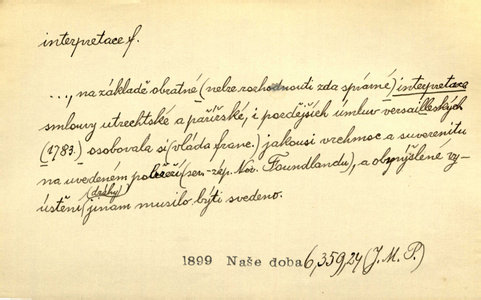 interpretace f.
..., na základě obratné (nelze rozhodnouti zda správné) interpretace
smlouvy utrechtské a pařížské, i pozdějších úmluv versailleských
(1783.) osobovala si (vláda franc.) jakousi vrchmoc a suverenitu
na uvedeném pobřeží (sev.-záp. Nov. Foundlandu), a obmýšlené vy-
ústění (dráhy) jinam musilo býti svedeno.
1899 Naše doba 6,359,24 (J. M. P.)